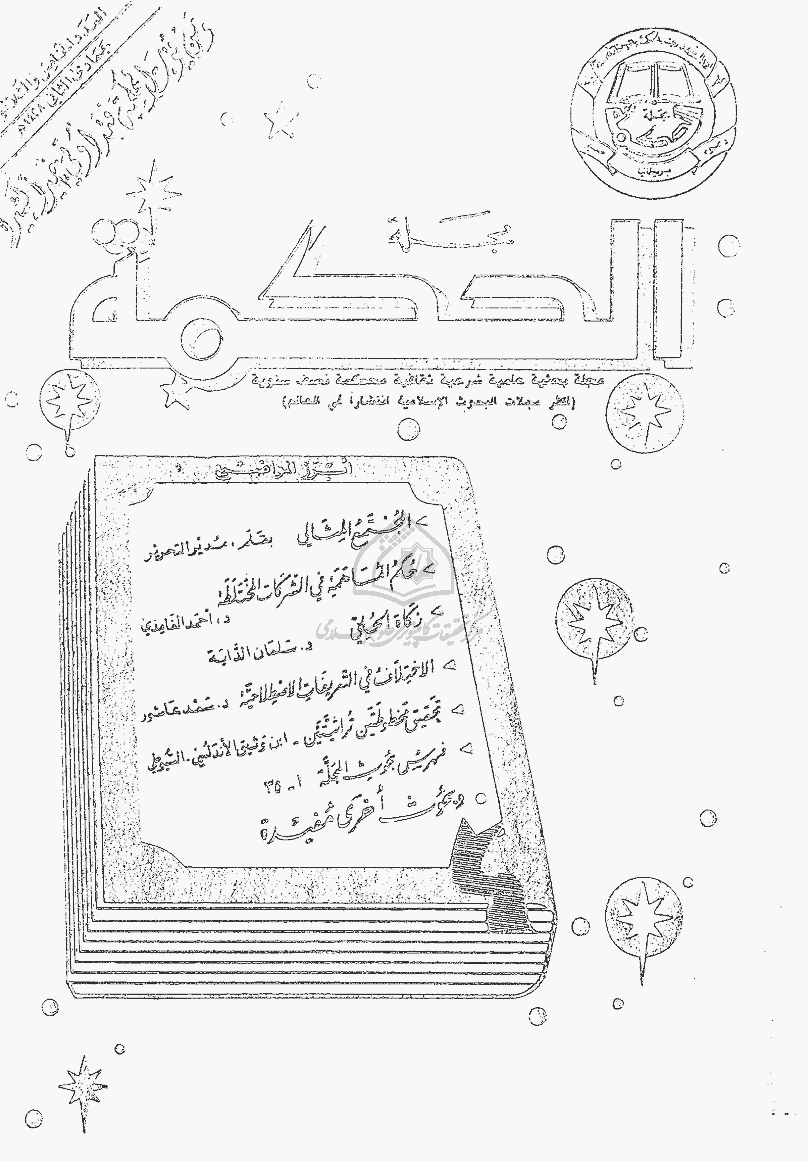 العدد الخامس والثلاثون
جمادى الثاني ١٤٢٨هـ
مجلة
الحكمة
مجلة
الحكمة
بريطانيا
مجلة بحثية علمية شرعية ثقافية محكمة نصف سنوية
(أكثر مجلات البحوث الإسلامية انتشارا في العالم)
أبرز المواضيع
> المُجْتَمَعُ المِثَالي بقلم، مدير التحرير
> حُكمُ المُسَاهَمَةِ في الشَّرِكَاتِ المُخْتَلَطَةِ
د. أحمد الغامدي
> زَكَاةُ الحُلِيِّ
د. سَلمَان الدَّايَة
> الاخْتِلافُ في التَّعْرِيفَاتِ الاصْطِلاحِيَّةِ د. سَعْد عَاشور
> تَحْقِيق مَخْطُوطَتَيْنِ تُراثِيَّتَيْنِ - ابن وَثيق الأندلسي - السُّيوطي
> فهرس بحوث المجلَّة ١ - ٣٥
وبحُوث أُخرَى مُفيدَة